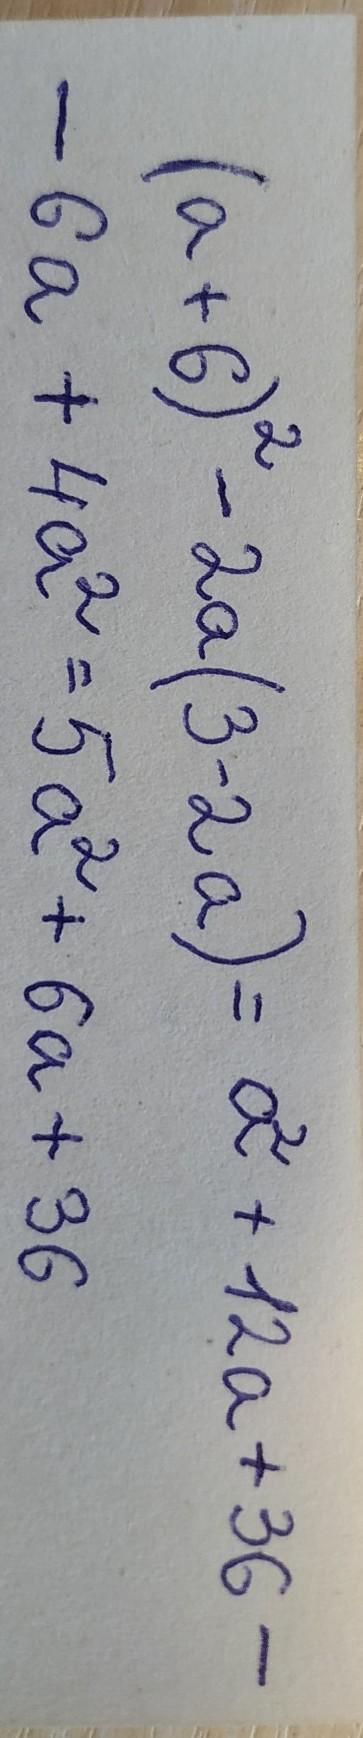 (a + 6)² - 2a(3 - 2a) = a² + 12a + 36 -
- 6a + 4a² = 5a² + 6a + 36